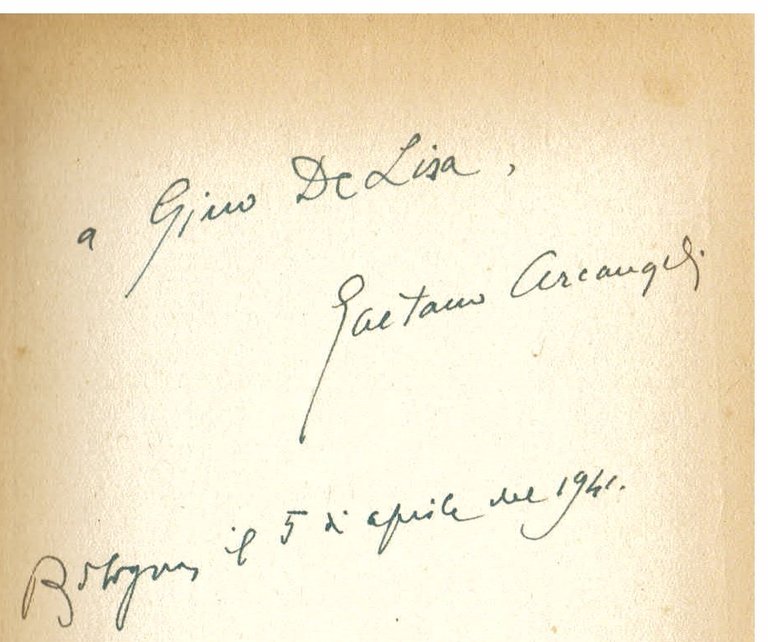 a Gino De Lisa,
Gaetano Arcangeli
Bologna, il 5 di aprile del 1941.